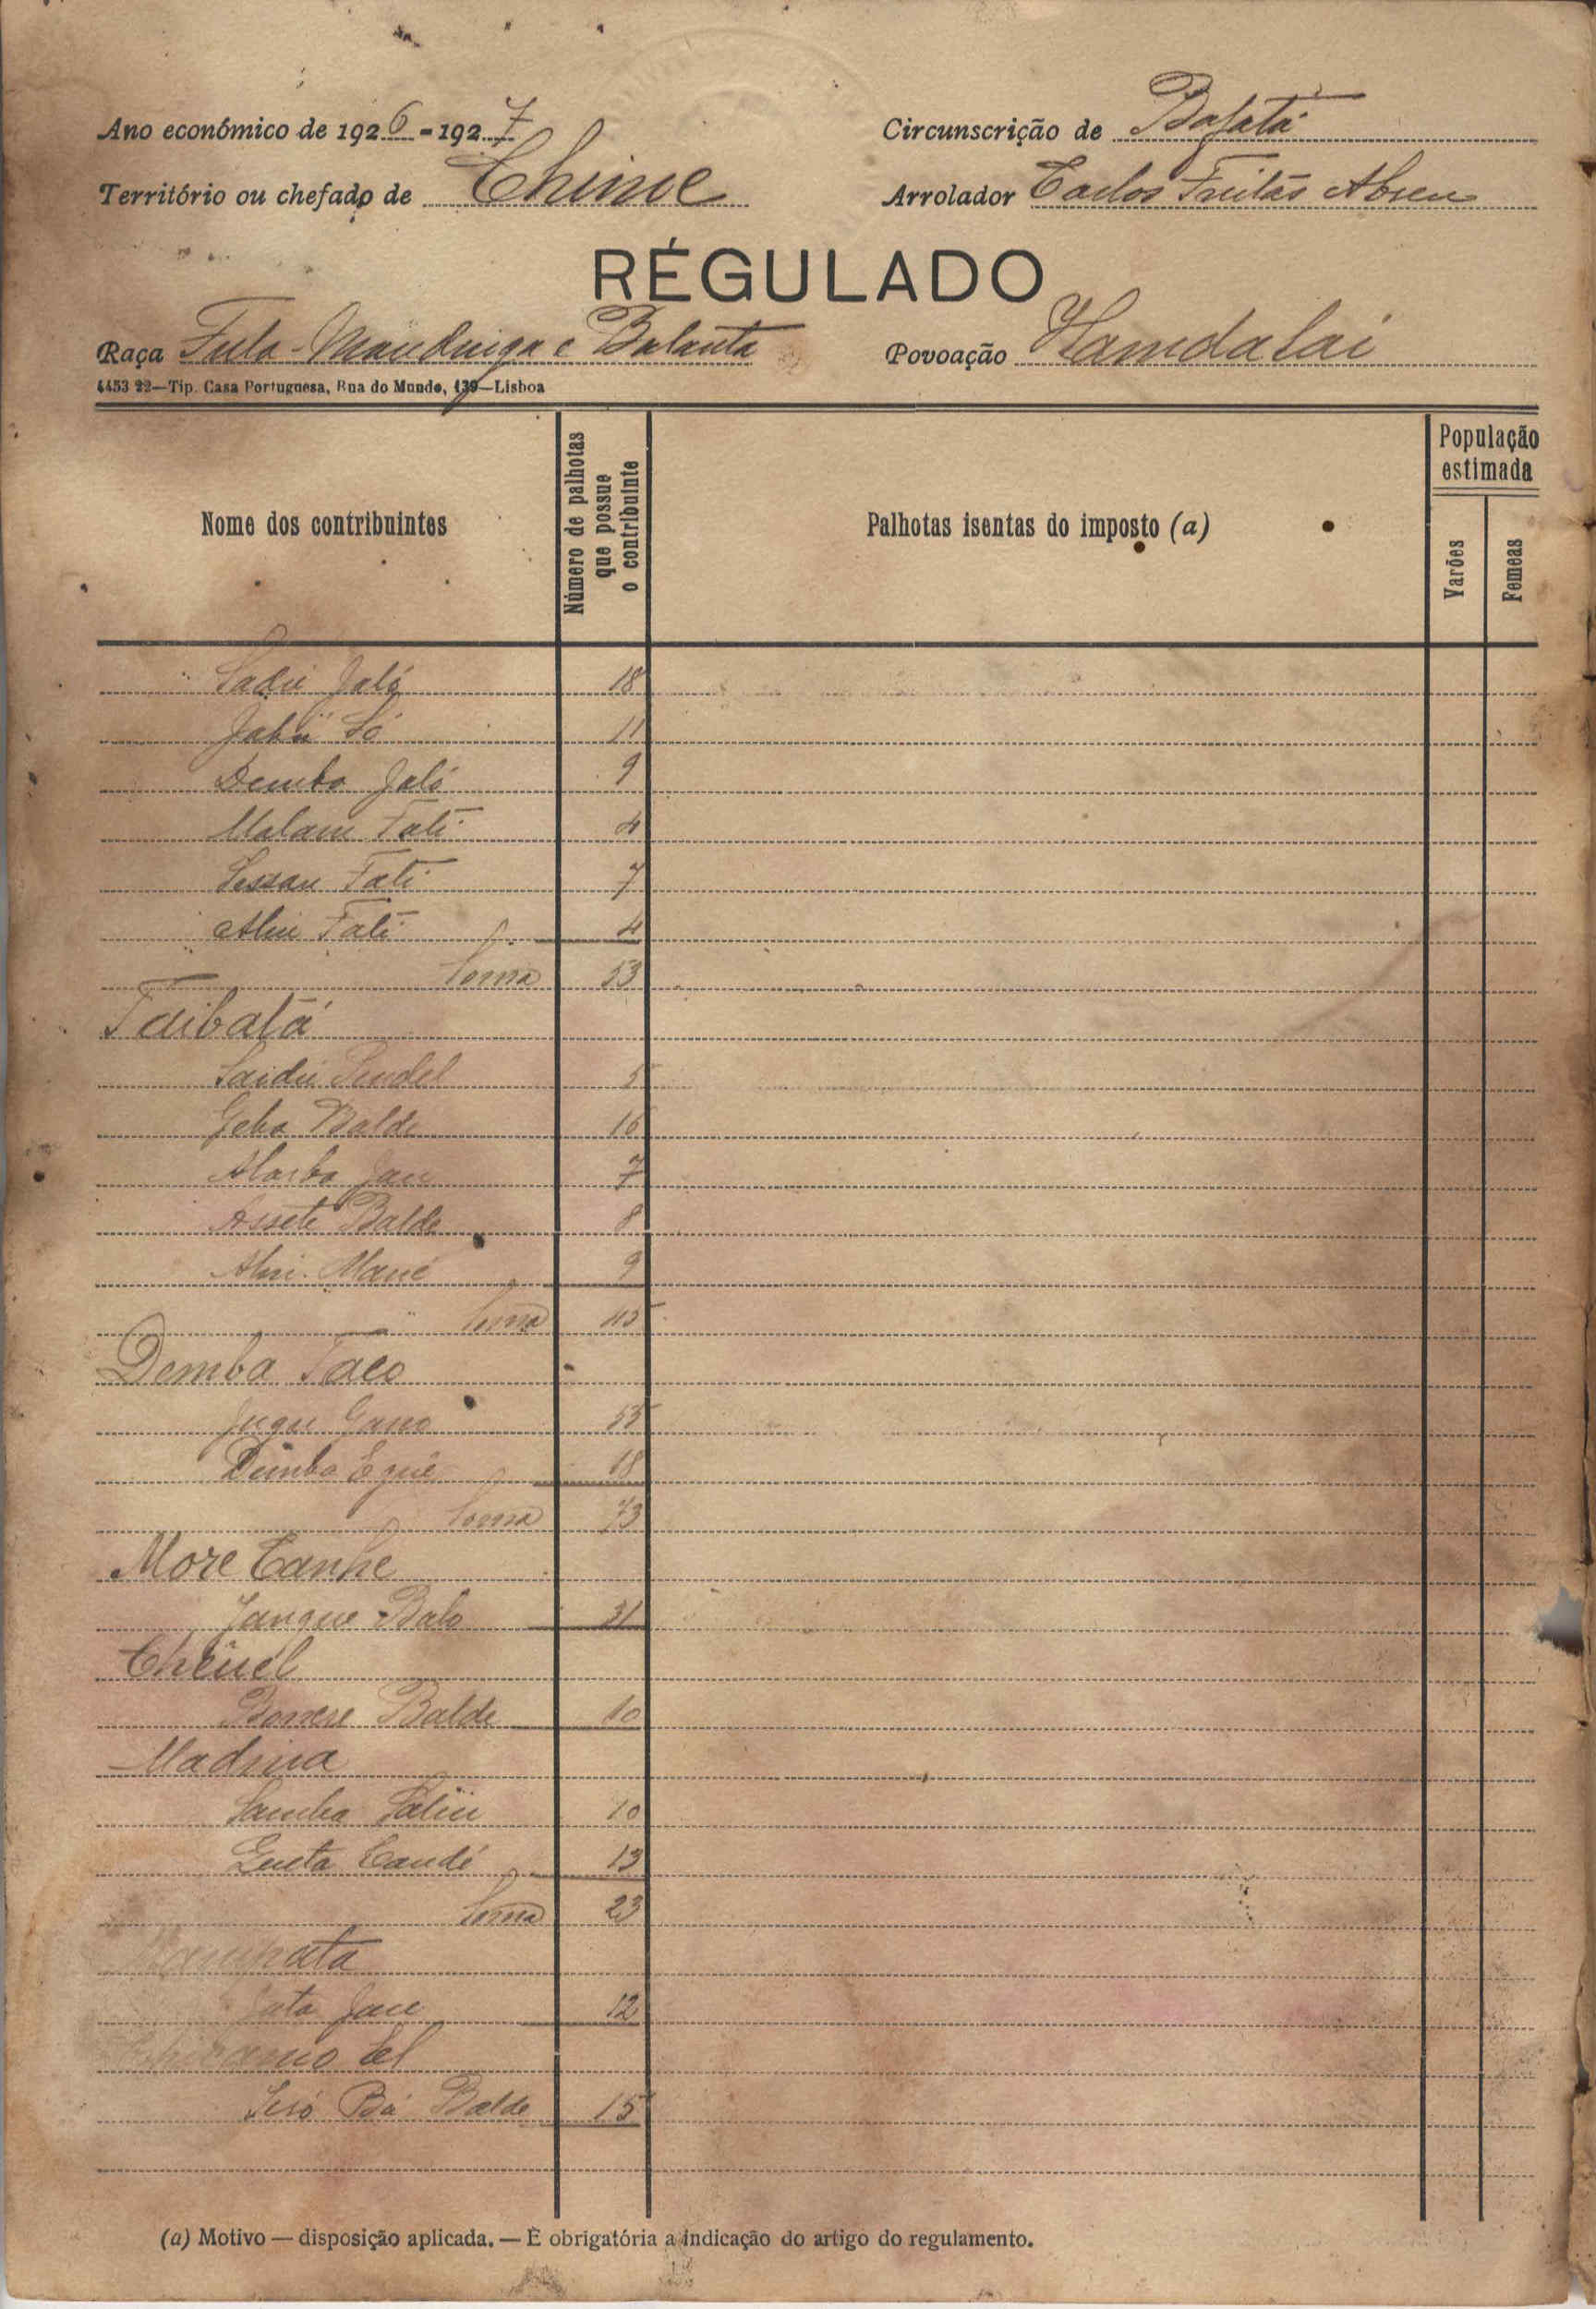 Ano económico de 1926-1927
Circunscrição de Bafatá
Território ou chefado de Chime
Arrolador Carlos Freitas Abreu
RÉGULADO
Raça Fula-Mandinga e Balanta
Povoação Hamdalai
4453 22—Tip. Casa Portuguesa, Rua do Mundo, 139—Lisboa
Nome dos contribuintes
Número de palhotas que possue o contribuinte
Palhotas isentas do imposto (a)
População estimada
Varões
Femeas
Sadú Jaló 18
Só 11
Demba Jaló 9
Malam Fati 4
Fati 7
Aliu Fati 4
Soma 53
Taibatá
Saidú 5
Geba Balde 16
7
Balde 8
Mané 9
Soma 45
Demba Taco
Gano 55
Demba 18
Soma 73
More Canhe
Balo 31
Balde 10
Madina
Samba 10
Candé 13
Soma 23
12
Bá Balde 15
(a) Motivo — disposição aplicada. — É obrigatória a indicação do artigo do regulamento.